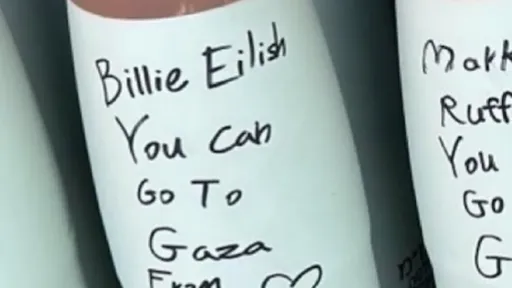 Billie Eilish
You can
Go To
Gaza
From
Mark
Ruff
You
Go
G